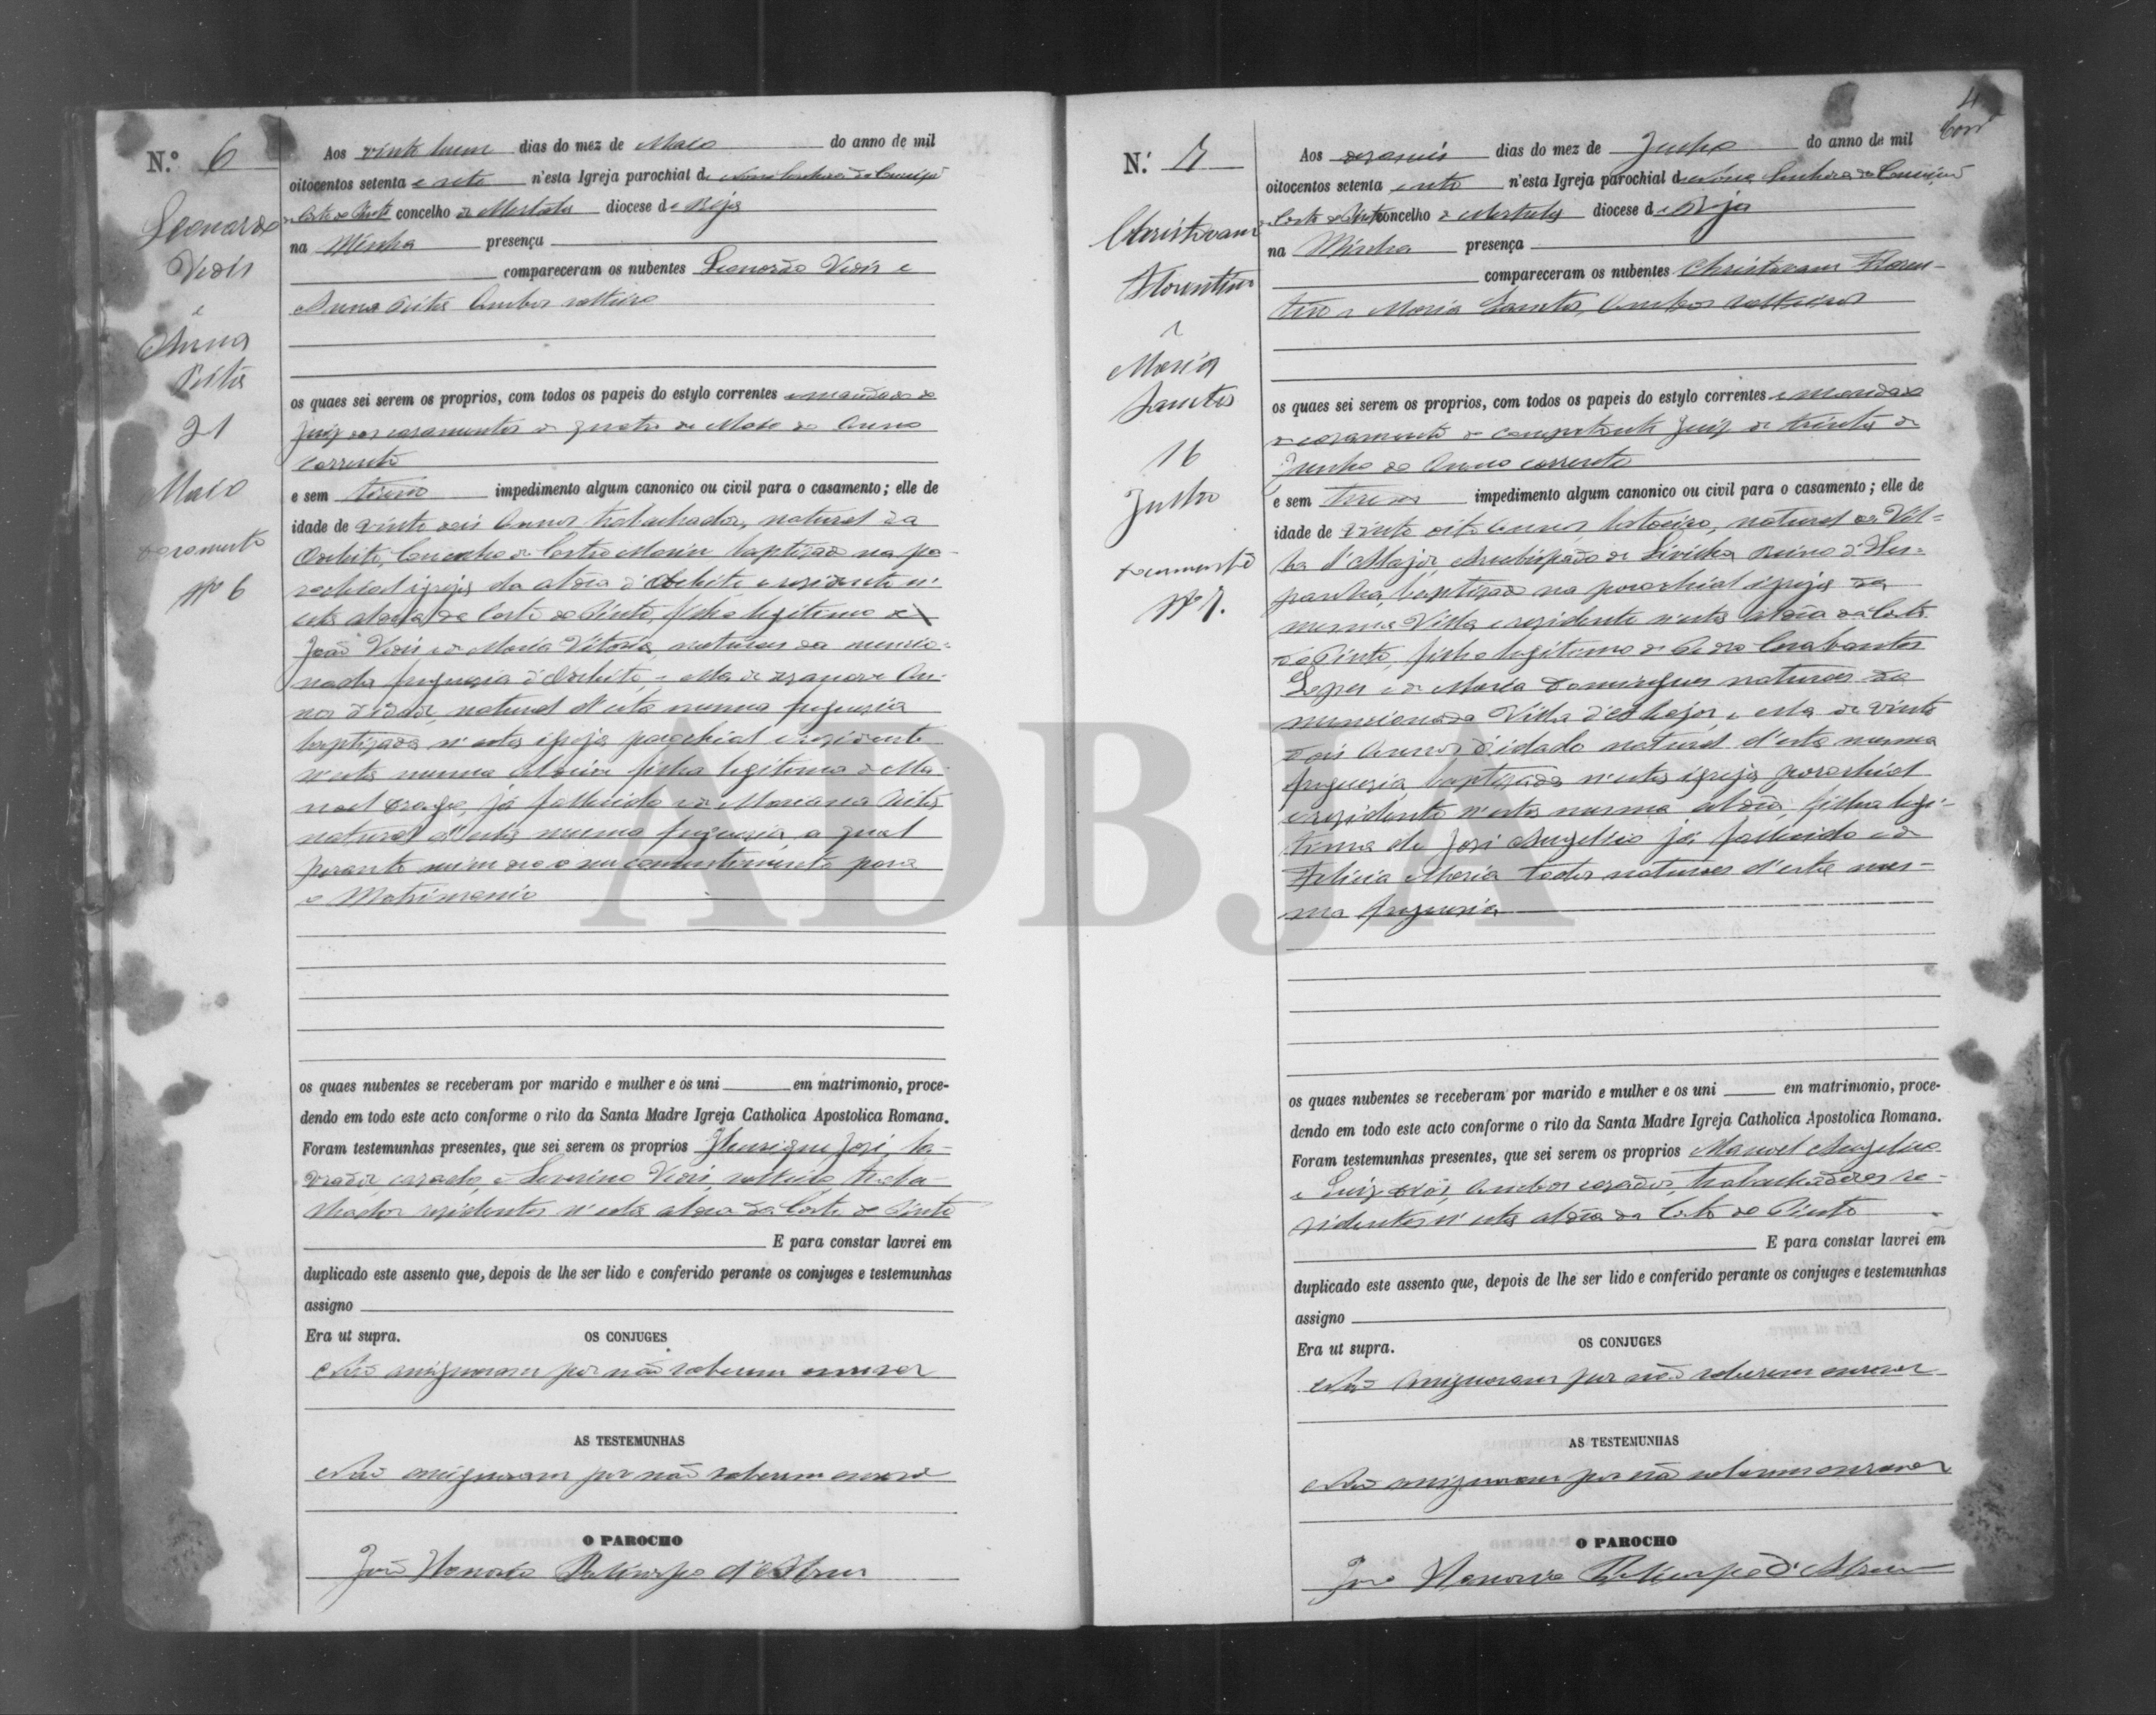 N.º 6
Leonardo
Vidis
e
Anna
21
Maio
casamento
Nº 6
Aos vinte hum dias do mez de Maio do anno de mil
oitocentos setenta e sete n'esta Igreja parochial de Nossa Senhora da Conceição
da Corte do Pinto concelho de Mertola diocese de Beja
na Minha presença
compareceram os nubentes Leonardo Vidis e
Anna ambos solteiros
os quaes sei serem os proprios, com todos os papeis do estylo correntes e mandado do
Juiz dos casamentos de quatro de Maio do Anno
corrente
e sem impedimento algum canonico ou civil para o casamento; elle de
idade de vinte seis Annos trabalhador, natural da
concelho de Castro Marim baptizado na pa-
rochial igreja da aldêa d' e residente n'
esta aldeia da Corte do Pinto, filho legitimo de
João Vidis e de Maria Vitoria, naturaes da mencio-
nada freguezia d' e ella de dezanove An-
nos d'idade, natural d'esta mesma freguezia
baptizada n'esta igreja parochial e rezidente
n'esta mesma aldeia filha legitima de Ma-
noel já fallecido e de Marianna
natural d'esta mesma freguezia, a qual
perante mim deo o seu consentimento para
o Matrimonio
os quaes nubentes se receberam por marido e mulher e os uni em matrimonio, proce-
dendo em todo este acto conforme o rito da Santa Madre Igreja Catholica Apostolica Romana.
Foram testemunhas presentes, que sei serem os proprios Henrique José, la-
vrador, casado, e Severino Vidis, solteiro traba-
lhador rezidentes n'esta aldea da Corte do Pinto
E para constar lavrei em
duplicado este assento que, depois de lhe ser lido e conferido perante os conjuges e testemunhas
assigno
Era ut supra.
OS CONJUGES
Não assignaram por não saberem escrever
AS TESTEMUNHAS
Não assignaram por não saberem escrever
O PAROCHO
João Honorio Policarpo d'Abreu
4
N.º 7
Christovam
Florentino
e
Maria
Santos
16
Julho
casamento
Nº 7.
Aos dezaseis dias do mez de Julho do anno de mil
oitocentos setenta e sete n'esta Igreja parochial de Nossa Senhora da Conceição
da Corte do Pinto concelho de Mertola diocese de Beja
na Minha presença
compareceram os nubentes Christovam Floren-
tino e Maria Santos, Ambos solteiros
os quaes sei serem os proprios, com todos os papeis do estylo correntes e mandado
de casamento do competente Juiz de trinta de
Junho do Anno corrente
e sem impedimento algum canonico ou civil para o casamento; elle de
idade de vinte oito Annos, natural de Vil-
ha d' Arcebispado de Sivilha Reino d'Hes-
panha, baptizado na parochial igreja da
mesma Villa e rezidente n'esta aldêa da Corte
do Pinto, filho legitimo de Pedro
Lopes e de Maria Domingues naturaes da
mencionada Villa d' e ella de vinte
dois Annos d'idade natural d'esta mesma
freguezia, baptizada n'esta igreja parochial
e rezidente n'esta mesma aldêa, filha legi-
tima de José Angelico já fallecido e de
Felicia Maria todos naturaes d'esta mes-
ma freguezia
os quaes nubentes se receberam por marido e mulher e os uni em matrimonio, proce-
dendo em todo este acto conforme o rito da Santa Madre Igreja Catholica Apostolica Romana.
Foram testemunhas presentes, que sei serem os proprios Manoel Angelico
e Luiz Ambos casados, trabalhadores re-
zidentes n'esta aldêa da Corte do Pinto
E para constar lavrei em
duplicado este assento que, depois de lhe ser lido e conferido perante os conjuges e testemunhas
assigno
Era ut supra.
OS CONJUGES
Não Assignaram por não saberem escrever
AS TESTEMUNHAS
Não assignaram por não saberem escrever
O PAROCHO
João Honorio Policarpo d'Abreu
ADBJA